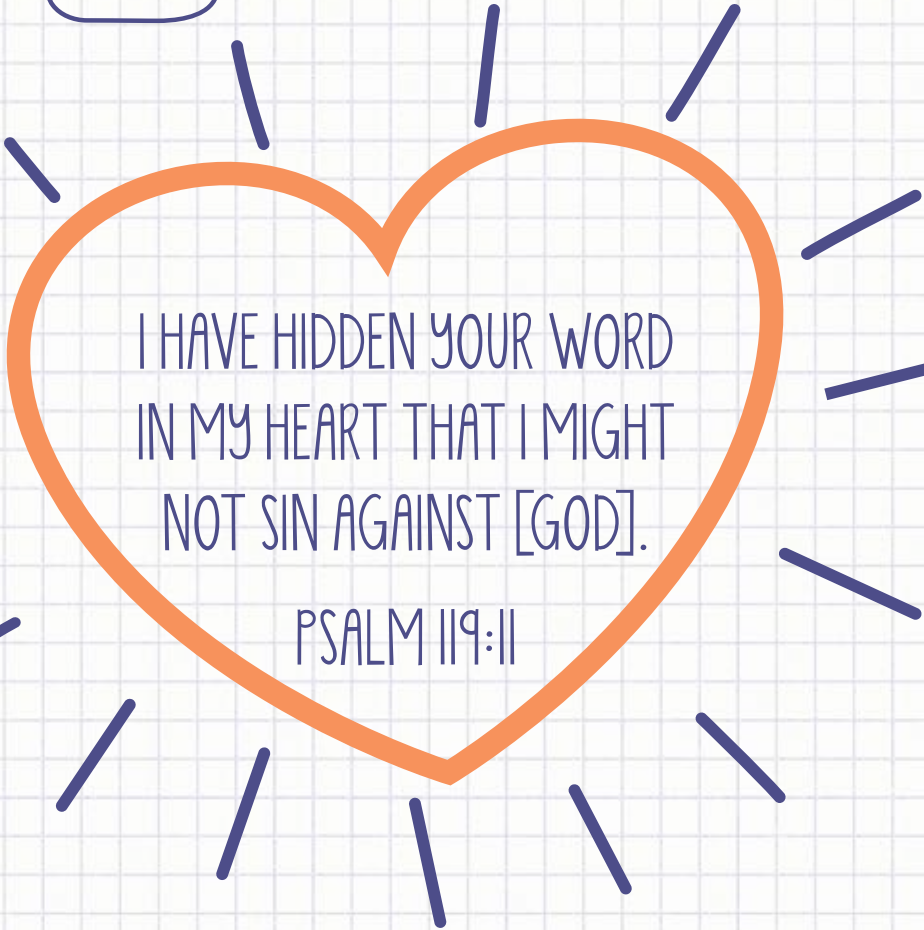 I HAVE HIDDEN YOUR WORD
IN MY HEART THAT I MIGHT
NOT SIN AGAINST [GOD].
PSALM 119:11